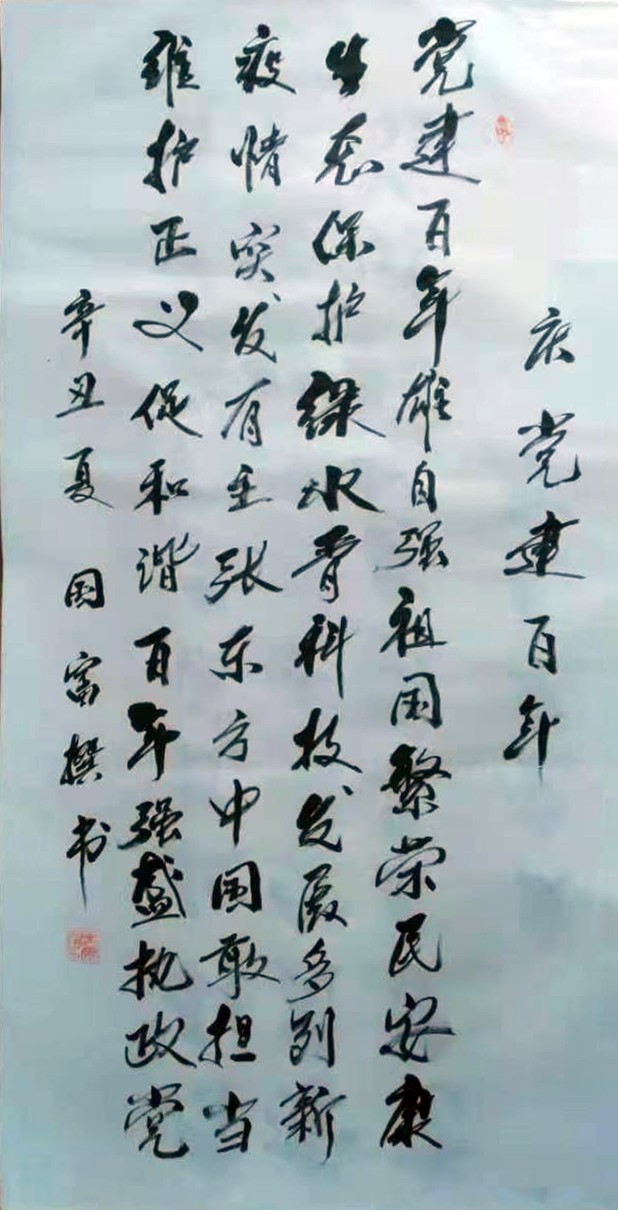 庆党建百年
党建百年雄自强祖国繁荣民安康
生态保护绿水青科技发展多创新
疫情突发有主张东方中国敢担当
维护正义促和谐百年强盛执政党
辛丑夏 国富撰书